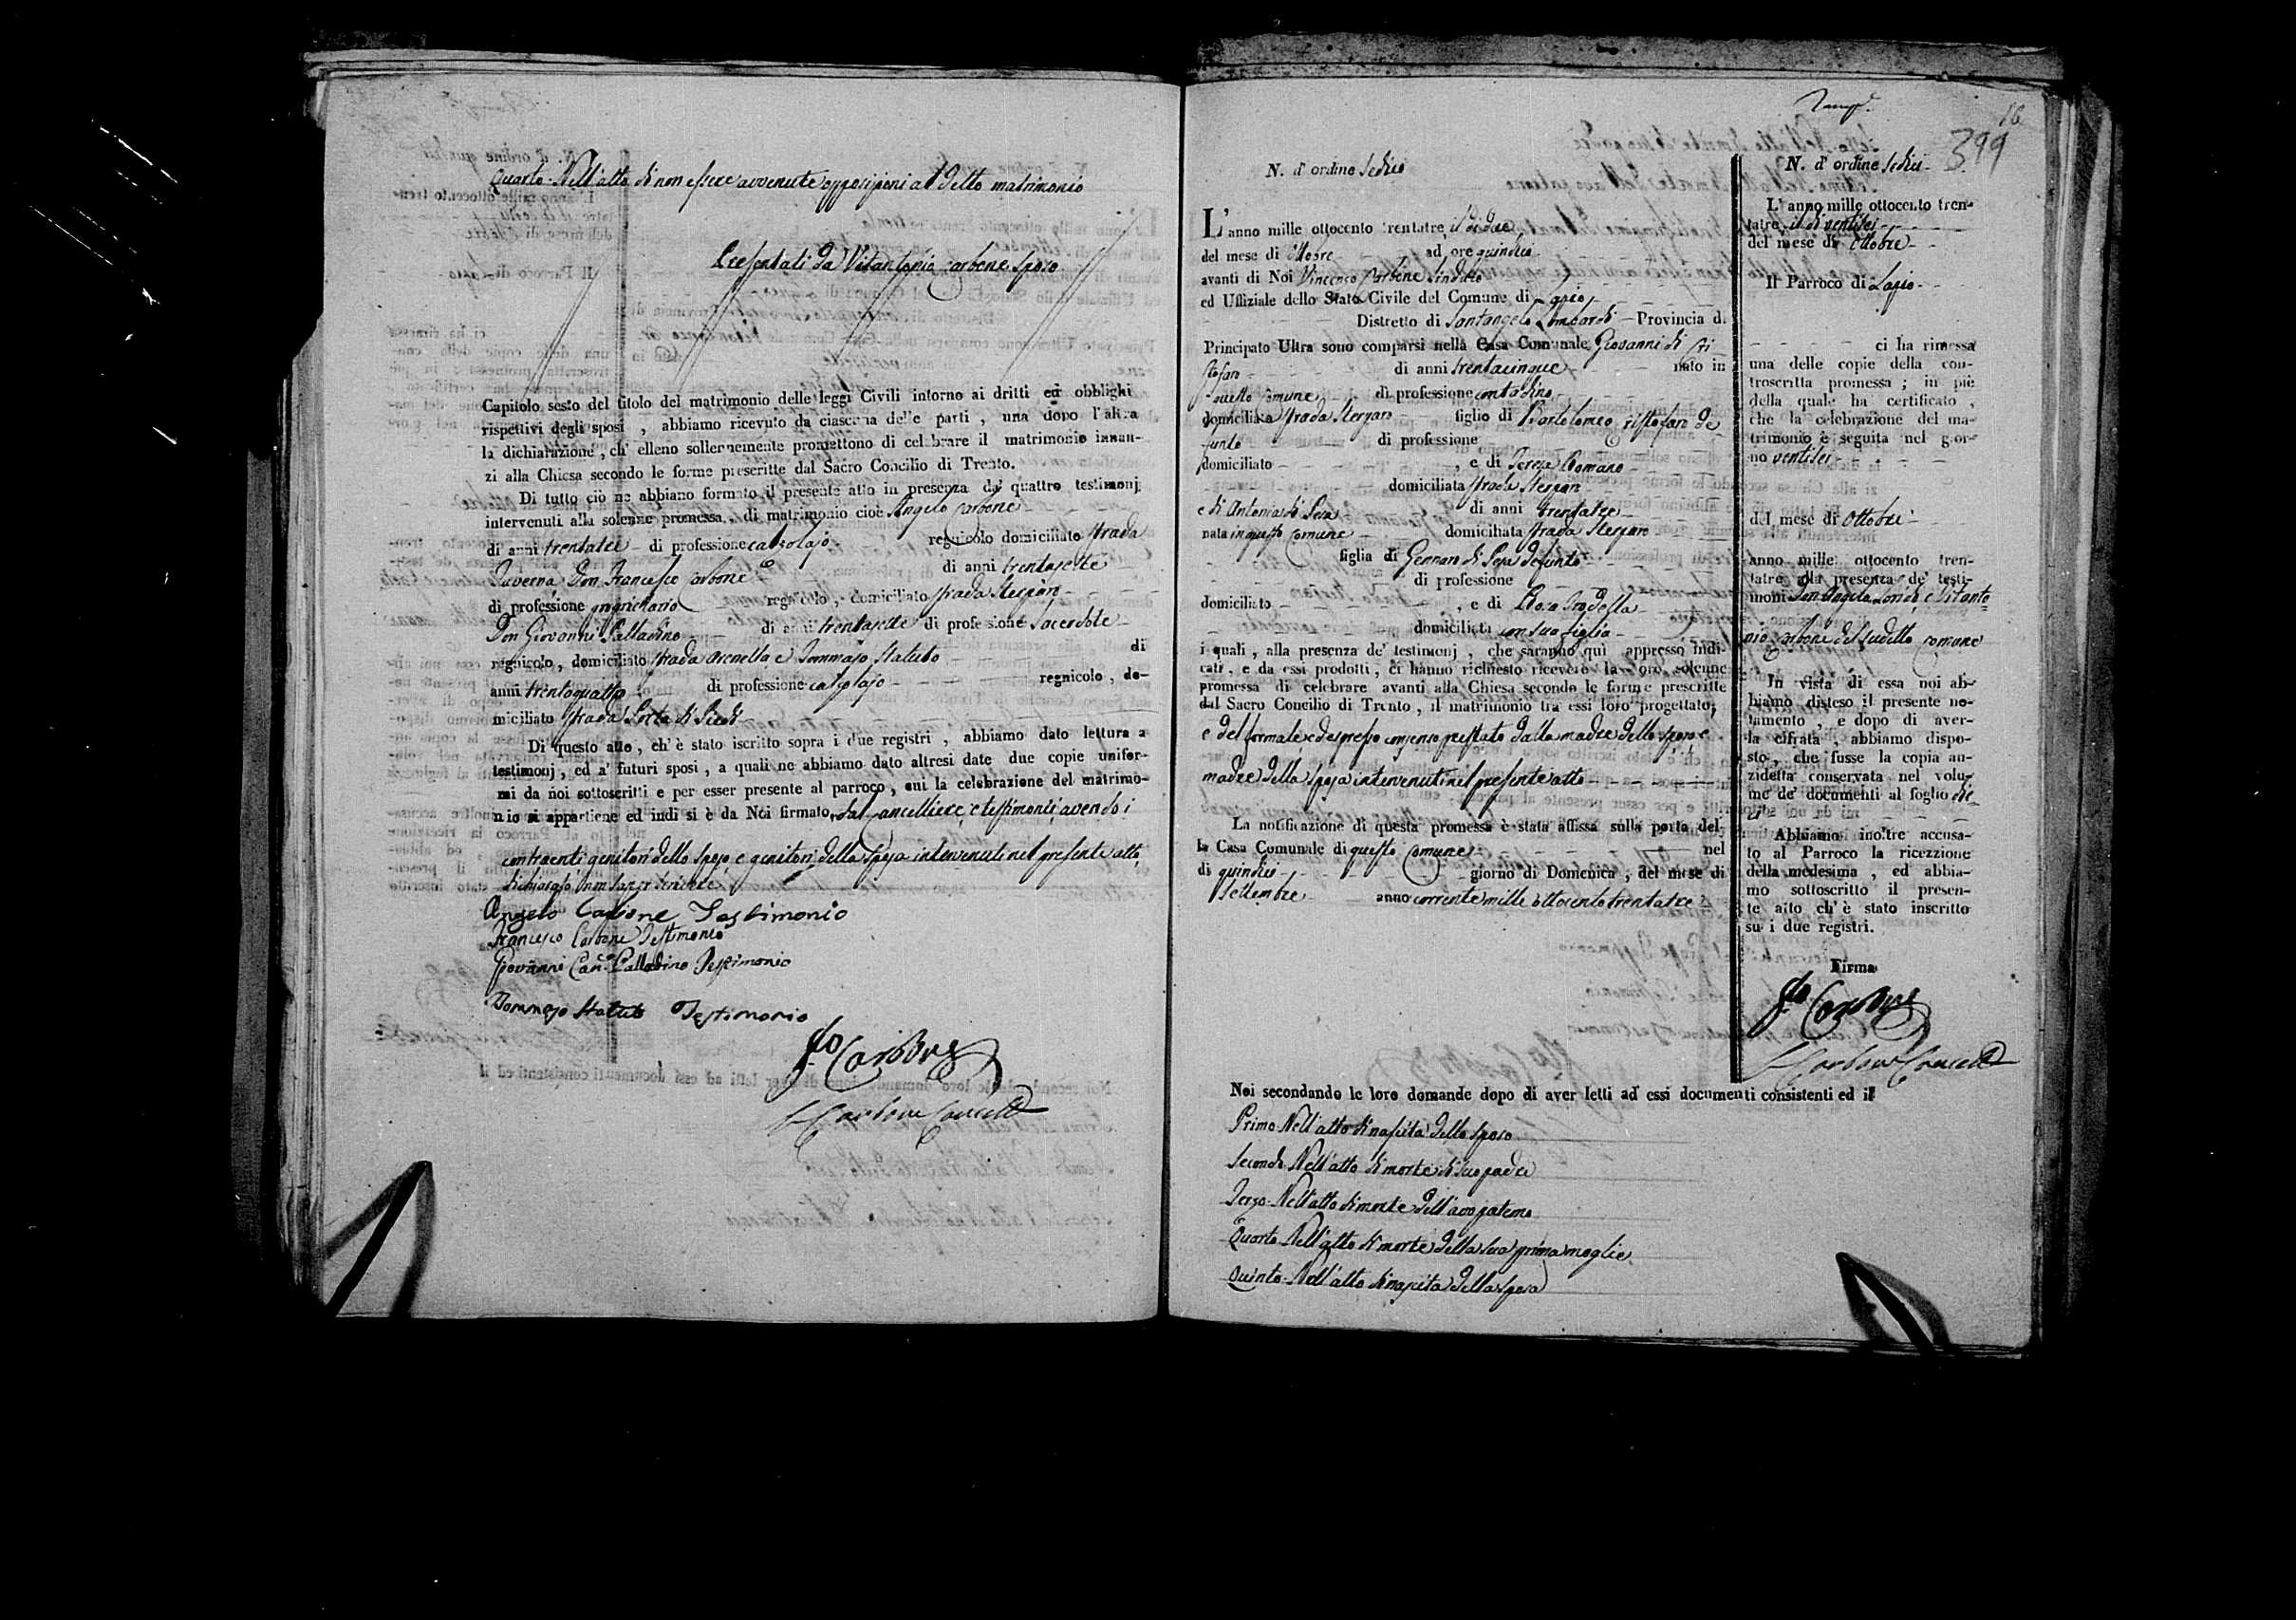 Quarto Nell'atto di non essere avvenute opposizioni al detto matrimonio
Presentati da Vitantonio Carbone sposo
Capitolo sesto del titolo del matrimonio delle leggi Civili intorno ai dritti ed obblighi
rispettivi degli sposi , abbiamo ricevuto da ciascuna delle parti , una dopo l'altra
la dichiarazione , ch' elleno sollernemente promettono di celebrare il matrimonio innan-
zi alla Chiesa secondo le forme prescritte dal Sacro Concilio di Trento.
Di tutto ciò ne abbiamo formato il presente atto in presenza da' quattro testimonj
intervenuti alla solenne promessa di matrimonio cioè Angelo Carbone
di anni trentatre di professione calzolajo regnicolo domiciliato strada
Taverna Don Francesco Carbone di anni trentasette
di professione proprietario regnicolo , domiciliato strada
Don Giovanni Palladino di anni trentasette di professione sacerdote
regnicolo , domiciliato strada Arenella e Tommaso Statuto di
anni trentaquattro di professione calzolajo regnicolo , do-
miciliato strada Porta di Piedi
Di questo atto , ch' è stato iscritto sopra i due registri , abbiamo dato lettura a
testimonj , ed a' futuri sposi , a quali ne abbiamo dato altresi date due copie unifor-
mi da noi sottoscritti e per esser presente al parroco , cui la celebrazione del matrimo-
nio si appartiene ed indi si è da Noi firmato, dal Cancelliere, e testimonii avendo i
contraenti genitori dello sposo, e genitori della sposa intervenuti nel presente atto
dichiarato non saper scrivere
Angelo Carbone Testimonio
Francesco Carbone Testimonio
Giovanni Can.co Palladino Testimonio
Tommaso Statuto Testimonio
Carbone
Carbone Cancell
16
399
N. d' ordine Sedici
L' anno mille ottocento trentatre il dì due
del mese di Ottobre ad ore quindici
avanti di Noi Vincenzo Carbone Sindaco
ed Uffiziale dello Stato Civile del Comune di
Distretto di Santangelo Lombardi Provincia di
Principato Ultra sono comparsi nella Casa Comunale Giovanni di Cri
stofaro di anni trentacinque nato in
questo Comune di professione contadino
domiciliato strada figlio di Bartolomeo Cristofaro de
funto di professione
domiciliato , e di Teresa Romano
domiciliata strada
e di Antonia di di anni trentatre
nata in questo Comune domiciliata strada
figlia di Gennaro di defunto
di professione
domiciliato , e di Rosa
domiciliata con sua figlia
i quali , alla presenza de' testimonj , che saranno quì appresso indi-
cati , e da essi prodotti , ci hanno richiesto ricevere la loro solenne
promessa di celebrare avanti alla Chiesa secondo le forme prescritte
dal Sacro Concilio di Trento , il matrimonio tra essi loro progettato;
e del formale ed espresso consenso prestato dalla madre dello sposo, e
madre della sposa intervenuti nel presente atto
La notificazione di questa promessa è stata affissa sulla porta del-
la Casa Comunale di questo Comune nel
dì quindici giorno di Domenica , del mese di
Settembre anno corrente mille ottocento trentatre
Noi secondando le loro domande dopo di aver letti ad essi documenti consistenti ed il
Primo Nell'atto di nascita dello sposo
Secondo Nell'atto di morte di suo padre
Terzo Nell'atto di morte dell'avo paterno
Quarto Nell'atto di morte della sua prima moglie
Quinto Nell'atto di nascita della sposa
N. d' ordine Sedici
L' anno mille ottocento tren-
tatre il dì ventisei
del mese di Ottobre
Il Parroco di
ci ha rimessa
una delle copie della con-
troscritta promessa ; in piè
della quale ha certificato ,
che la celebrazione del ma-
trimonio è seguita nel gior-
no ventisei
del mese di Ottobre
anno mille ottocento tren-
tatre alla presenza de' testi-
moni Don Angelo e Vitanto
nio Carbone del sudetto Comune
In vista di essa noi ab-
biamo disteso il presente no-
tamento , e dopo di aver-
la cifrata , abbiamo dispo-
sto , che fusse la copia an-
zidetta conservata nel volu-
me de' documenti al foglio die
ci
Abbiamo inoltre accusa-
to al Parroco la ricezzione
della medesima , ed abbia-
mo sottoscritto il presen-
te atto ch' è stato inscritto
su i due registri.
Firma
Carbone
Carbone Cancell